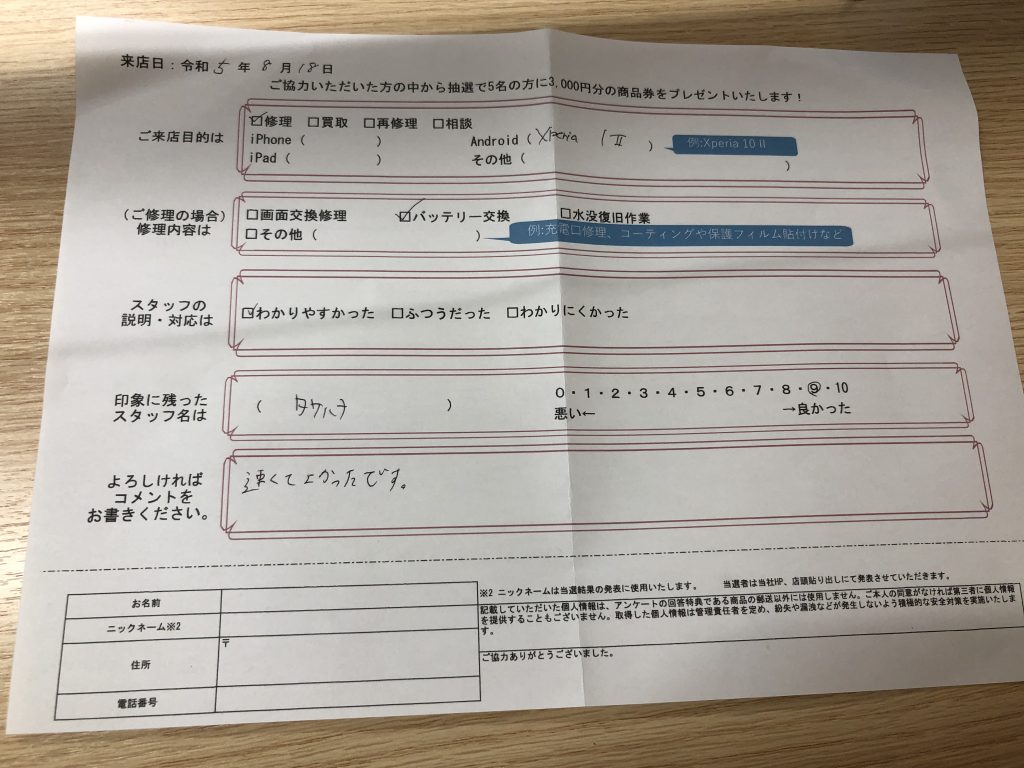 来店日：令和5年8月18日
ご協力いただいた方の中から抽選で5名の方に3,000円分の商品券をプレゼントいたします！
ご来店目的は
☑修理 □買取 □再修理 □相談
iPhone（ ） Android（Xperia 1Ⅱ ）
例:Xperia 10 II
iPad（ ） その他（ ）
（ご修理の場合）
修理内容は
□画面交換修理 ☑バッテリー交換 □水没復旧作業
□その他（ ）
例:充電口修理、コーティングや保護フィルム貼付けなど
スタッフの
説明・対応は
☑わかりやすかった □ふつうだった □わかりにくかった
印象に残った
スタッフ名は
（ ）
0・1・2・3・4・5・6・7・8・⑨・10
悪い← →良かった
よろしければ
コメントを
お書きください。
速くてよかったです。
お名前
ニックネーム※2
住所
〒
電話番号
※2 ニックネームは当選結果の発表に使用いたします。 当選者は当社HP、店頭貼り出しにて発表させていただきます。
記載していただいた個人情報は、アンケートの回答特典である商品の郵送以外には使用しません。ご本人の同意がなければ第三者に個人情報
を提供することもございません。取得した個人情報は管理責任者を定め、紛失や漏洩などが発生しないよう積極的な安全対策を実施いたしま
す。
ご協力ありがとうございました。